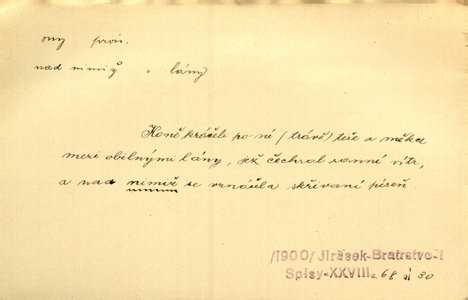 ony pron.
nad nimiž = lány
Koně kráčeli po ní (trávě) tiše a měkce
mezi obilnými lány, jež čechral ranní vítr,
a nad nimiž se vznášela skřivaní píseň.
/1900/ Jirásek-Bratrstvo-I
Spisy-XXVIII. 68 30